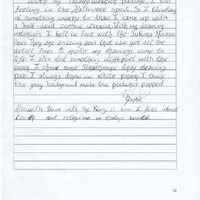 With my drawing package I was
feeling in the Halloween spirit. So I thinking
of something creepy to draw I came up with
a half-dead zombie wearing. With my drawing
materials I fell in love with the Sakura Micron
Pens. They are amazing pens that can get all the
detail lines to make my drawings come to
life. I also did something different with the
paper. I chose some Strathmore Gray drawing
pad. I always draw on white paper. I think
the gray background make the package popped.
Down with the King is how I feel about
and religion in today's world.